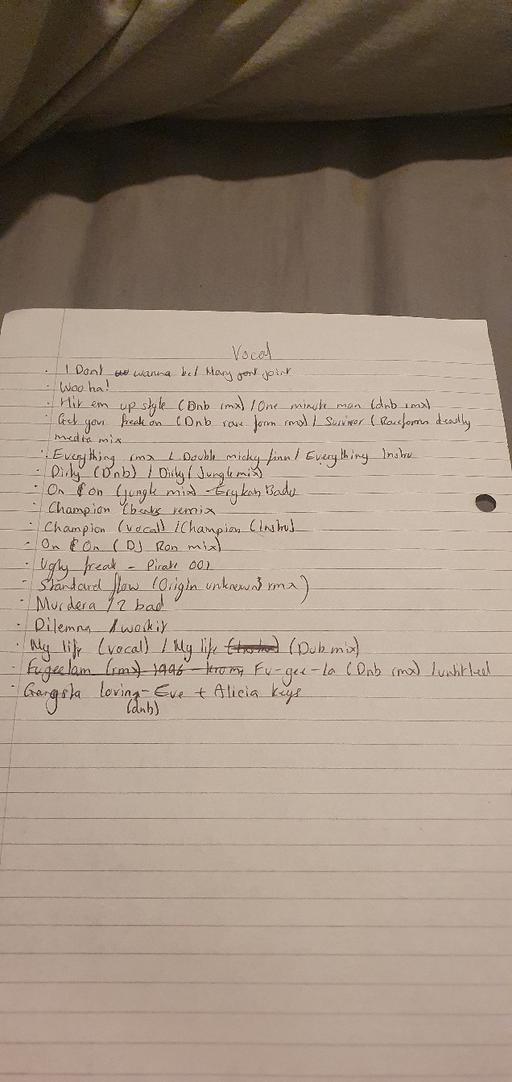 Vocal
· I Dont wanna be/ Mary joint
· Woo ha!
· Hit em up style (Dnb rmx) / One minute man (dnb rmx)
· Get your freak on (Dnb rave form rmx) / Survivor (Raveform deadly
media mix
· Everything rmx / Double micky finn / Everything Instru
· Dirty (Dnb) / Dirty (Jungle mix)
· On & On (jungle mix) - Erykah Badu
· Champion (beats remix
· Champion (vocal) / Champion (Instru)
· On & On (DJ Ron mix)
· Ugly freak - Pirate 001
· Standard flow (Origin unknown rmx)
· Murdera / 2 bad
· Dilemna / workit
· My life (vocal) / My life (Dub mix)
· Fu-gee-la (Dnb rmx) / untitled
· Gangsta loving - Eve + Alicia keys
(dnb)